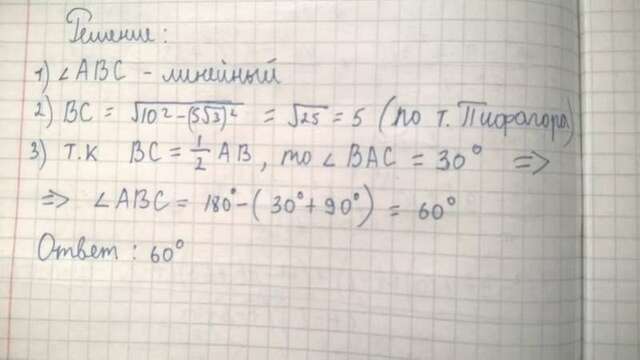 Решение:
1) ∠ABC - линейный
2) BC = √10² - (5√3)² = √25 = 5 (по т. Пифагора)
3) т.к BC = 1/2 AB, то ∠BAC = 30° =>
=> ∠ABC = 180° - (30° + 90°) = 60°
Ответ: 60°